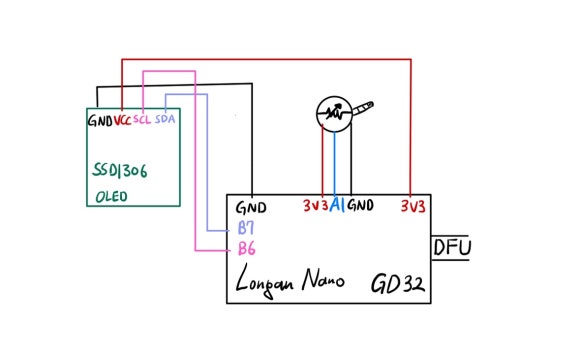 GND VCC SCL SDA
SSD1306
OLED
GND 3V3 A1 GND 3V3
B7
B6
DFU
Longan Nano GD32